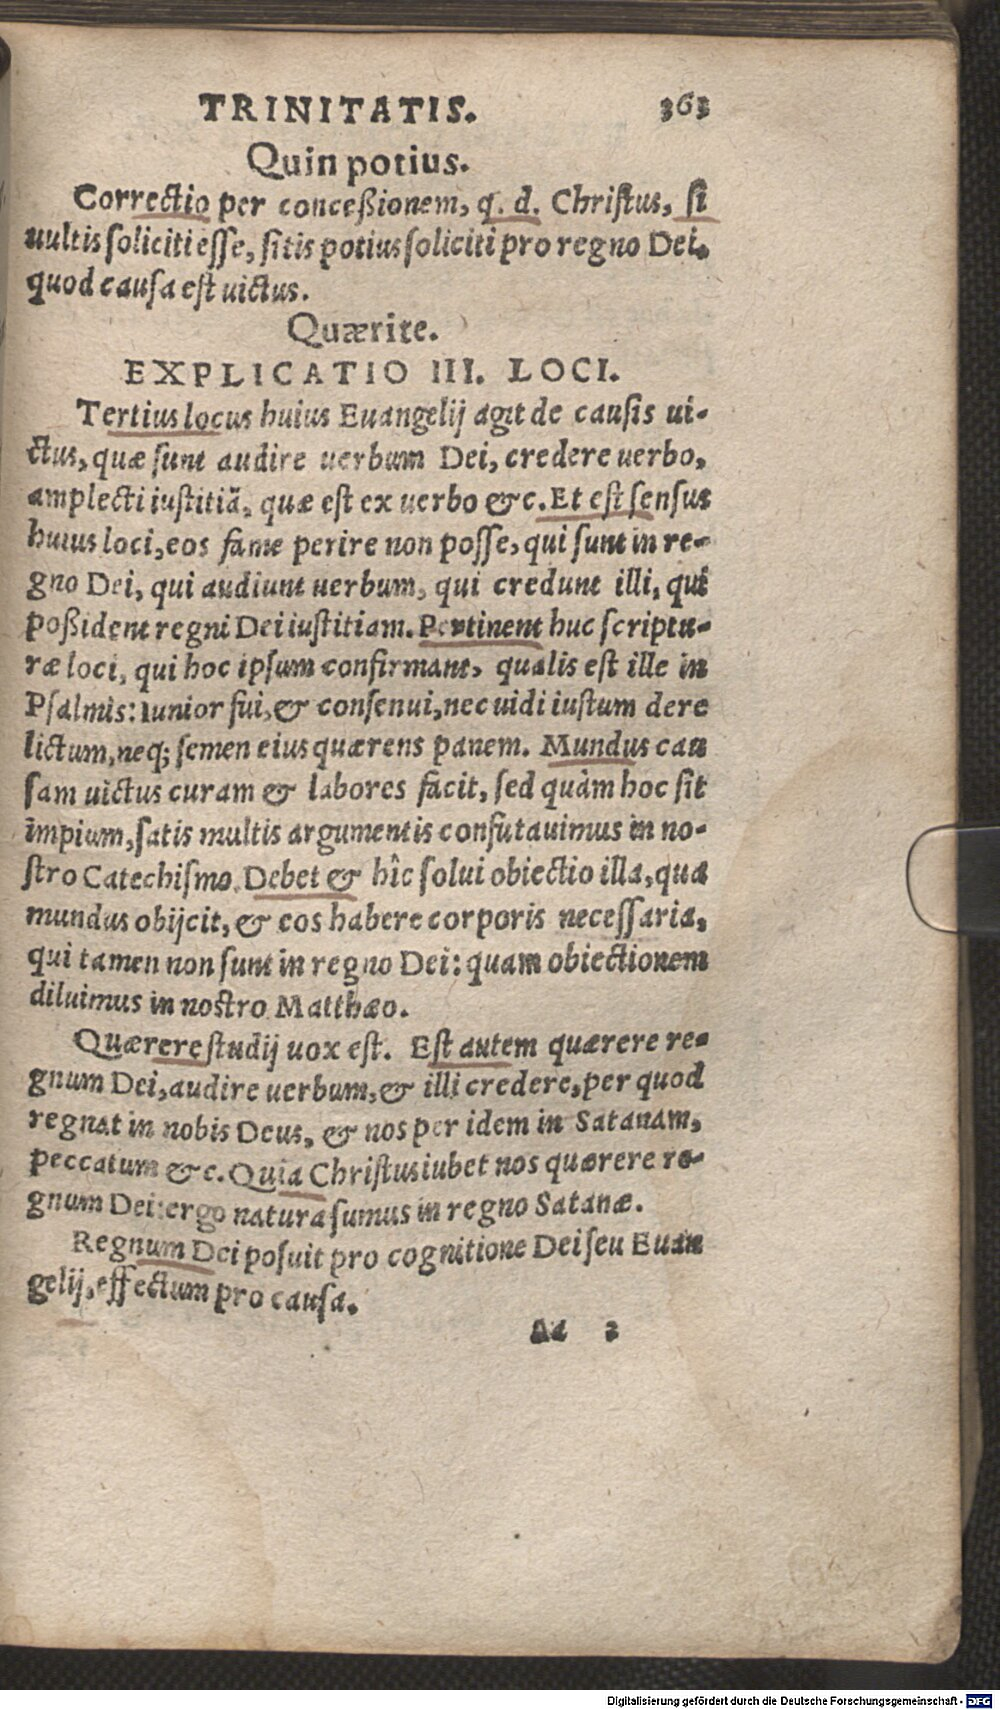 TRINITATIS. 363
Quin potius.
Correctio per conceßionem, q. d. Christus, si
uultis soliciti esse, sitis potius soliciti pro regno Dei.
quod causa est uictus.
Quærite.
EXPLICATIO III. LOCI.
Tertius locus huius Euangelij agit de causis ui-
ctus, quæ sunt audire uerbum Dei, credere uerbo,
amplecti iustitiã, quæ est ex uerbo &c. Et est sensus
huius loci, eos fame perire non posse, qui sunt in re-
gno Dei, qui audiunt uerbum, qui credunt illi, qui
poßident regni Dei iustitiam. Pertinent huc scriptu-
ræ loci, qui hoc ipsum confirmant, qualis est ille in
Psalmis: Iunior fui, & consenui, nec uidi iustum dere
lictum, neq; semen eius quærens panem. Mundus cau
sam uictus curam & labores facit, sed quàm hoc sit
impium, satis multis argumentis confutauimus in no-
stro Catechismo. Debet & hîc solui obiectio illa, qua
mundus obijcit, & eos habere corporis necessaria,
qui tamen non sunt in regno Dei: quam obiectionem
diluimus in nostro Matthæo.
Quærere studij uox est. Est autem quærere re-
gnum Dei, audire uerbum, & illi credere, per quod
regnat in nobis Deus, & nos per idem in Satanam,
peccatum &c. Quia Christus iubet nos quærere re-
gnum Dei: ergo natura sumus in regno Satanæ.
Regnum Dei posuit pro cognitione Dei seu Euan
gelij, effectum pro causa.
Aa 3
Digitalisierung gefördert durch die Deutsche Forschungsgemeinschaft - DFG